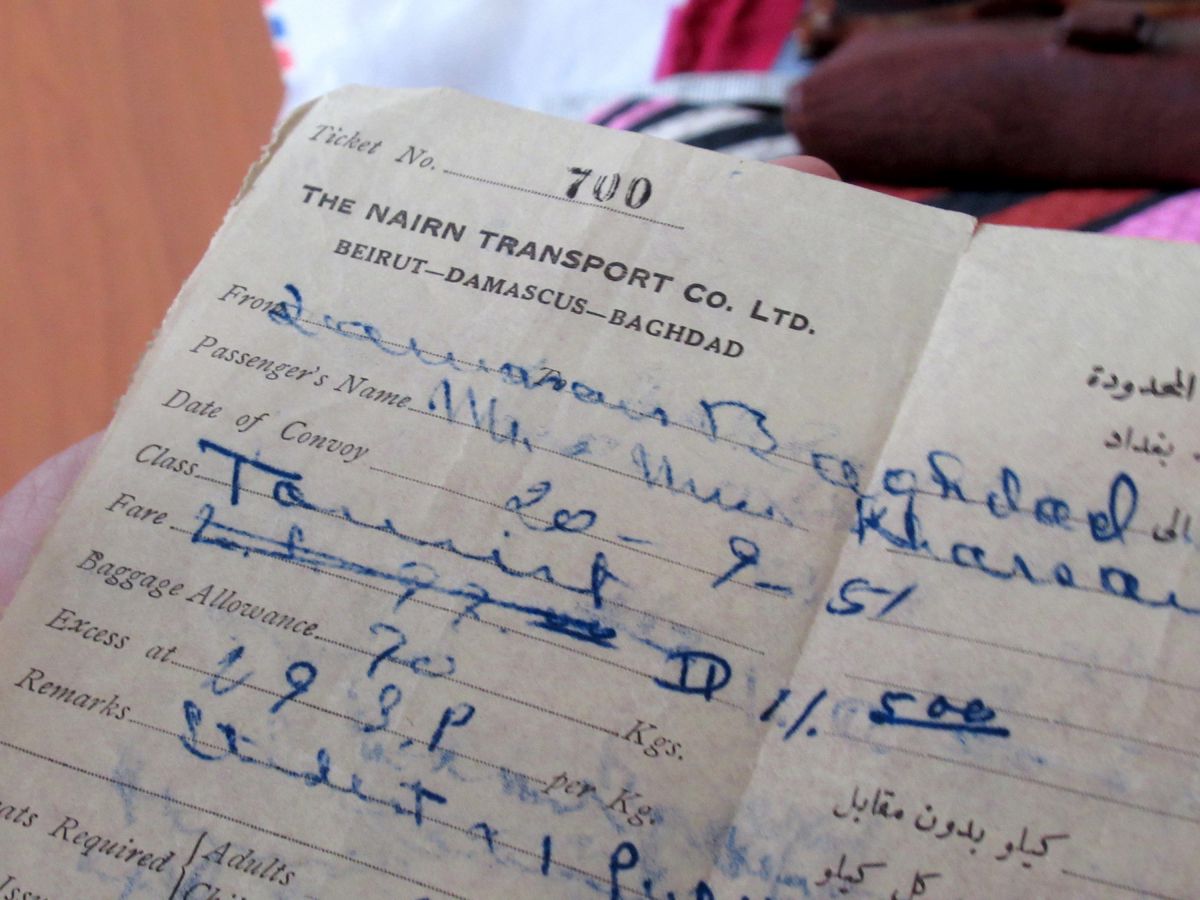 Ticket No. 700
THE NAIRN TRANSPORT CO. LTD.
BEIRUT—DAMASCUS—BAGHDAD
From Damascus To Baghdad
Passenger's Name
Date of Convoy 20-9-51
Class Tourist
Fare ID 1/.500
Baggage Allowance 70 Kgs.
Excess at per Kg.
Remarks Student
Required Adults
المحدودة
بغداد
الى
كيلو بدون مقابل
كل كيلو